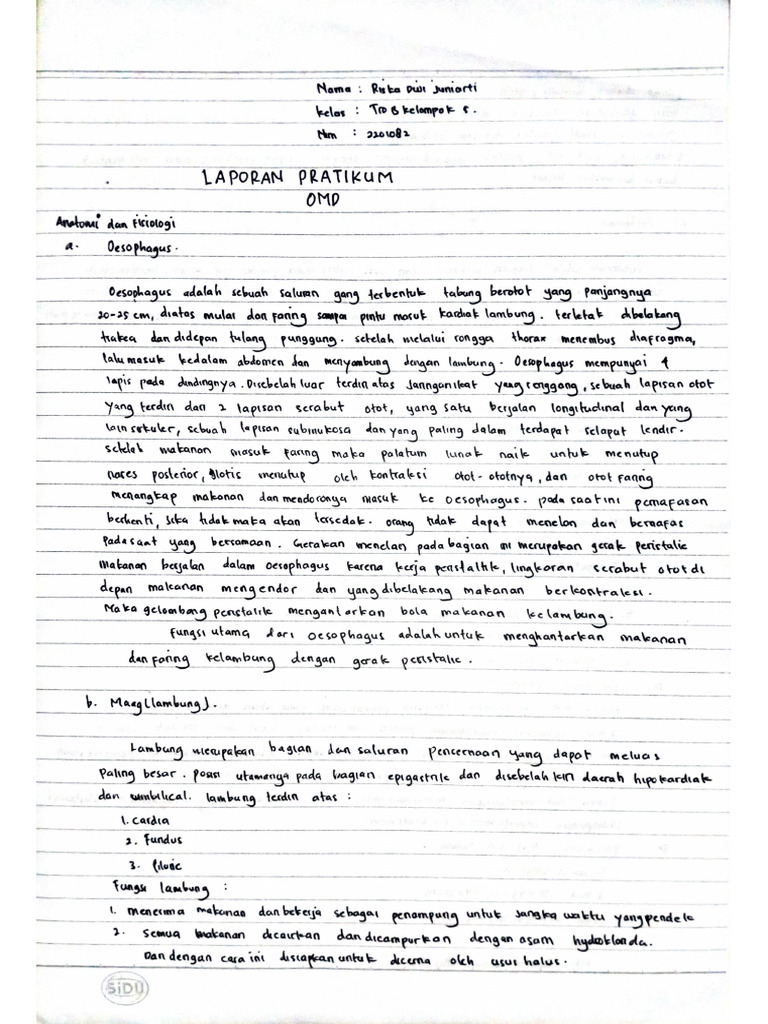 Nama : Riska Dwi Juniarti
Kelas : TRO B Kelompok 5.
Nim : 2201082
LAPORAN PRATIKUM
OMD
Anatomi dan Fisiologi
a. Oesophagus.
Oesophagus adalah sebuah saluran gang terbentuk tabung berotot yang panjangnya
20-25 cm, diatas mulai dari faring sampai pintu masuk kardiak lambung. terletak dibelakang
trakea dan didepan tulang punggung. setelah melalui rongga thorax menembus diafragma,
lalu masuk kedalam abdomen dan menyambung dengan lambung. Oesophagus mempunyai 4
lapis pada dindingnya. Disebelah luar terdiri atas Jaringan ikat yang renggang, sebuah lapisan otot
yang terdiri dari 2 lapisan serabut otot, yang satu berjalan longitudinal dan yang
lain sirkuler, sebuah lapisan submukosa dan yang paling dalam terdapat selaput lendir.
setelah makanan masuk faring maka palatum lunak naik untuk menutup
nares posterior, glotis menutup oleh kontraksi otot-ototnya, dan otot faring
menangkap makanan dan mendoronya masuk ke oesophagus. pada saat ini pernafasan
berhenti, jika tidak maka akan tersedak. orang tidak dapat menelan dan bernafas
pada saat yang bersamaan. Gerakan menelan pada bagian ini merupakan gerak peristalic
Makanan berjalan dalam oesophagus karena kerja peristaltik, lingkaran serabut otot di
depan makanan mengendor dan yang dibelakang makanan berkontraksi.
Maka gelombang peristalik mengantarkan bola makanan kelambung.
Fungsi utama dari oesophagus adalah untuk menghantarkan makanan
dari faring kelambung dengan gerak peristalic.
b. Maag (lambung).
Lambung merupakan bagian dari saluran pencernaan yang dapat meluas
Paling besar. posisi utamanya pada bagian epigastric dan disebelah kiri daerah hipokardiak
dan umbilical. lambung terdiri atas :
1. Cardia
2. Fundus
3. Piloric
Fungsi lambung :
1. menerima makanan dan bekerja sebagai penampung untuk jangka waktu yang pendek
2. semua makanan dicairkan dan dicampurkan dengan asam hydroklorida.
Dan dengan cara ini disiapkan untuk dicerna oleh usus halus.
SiDU